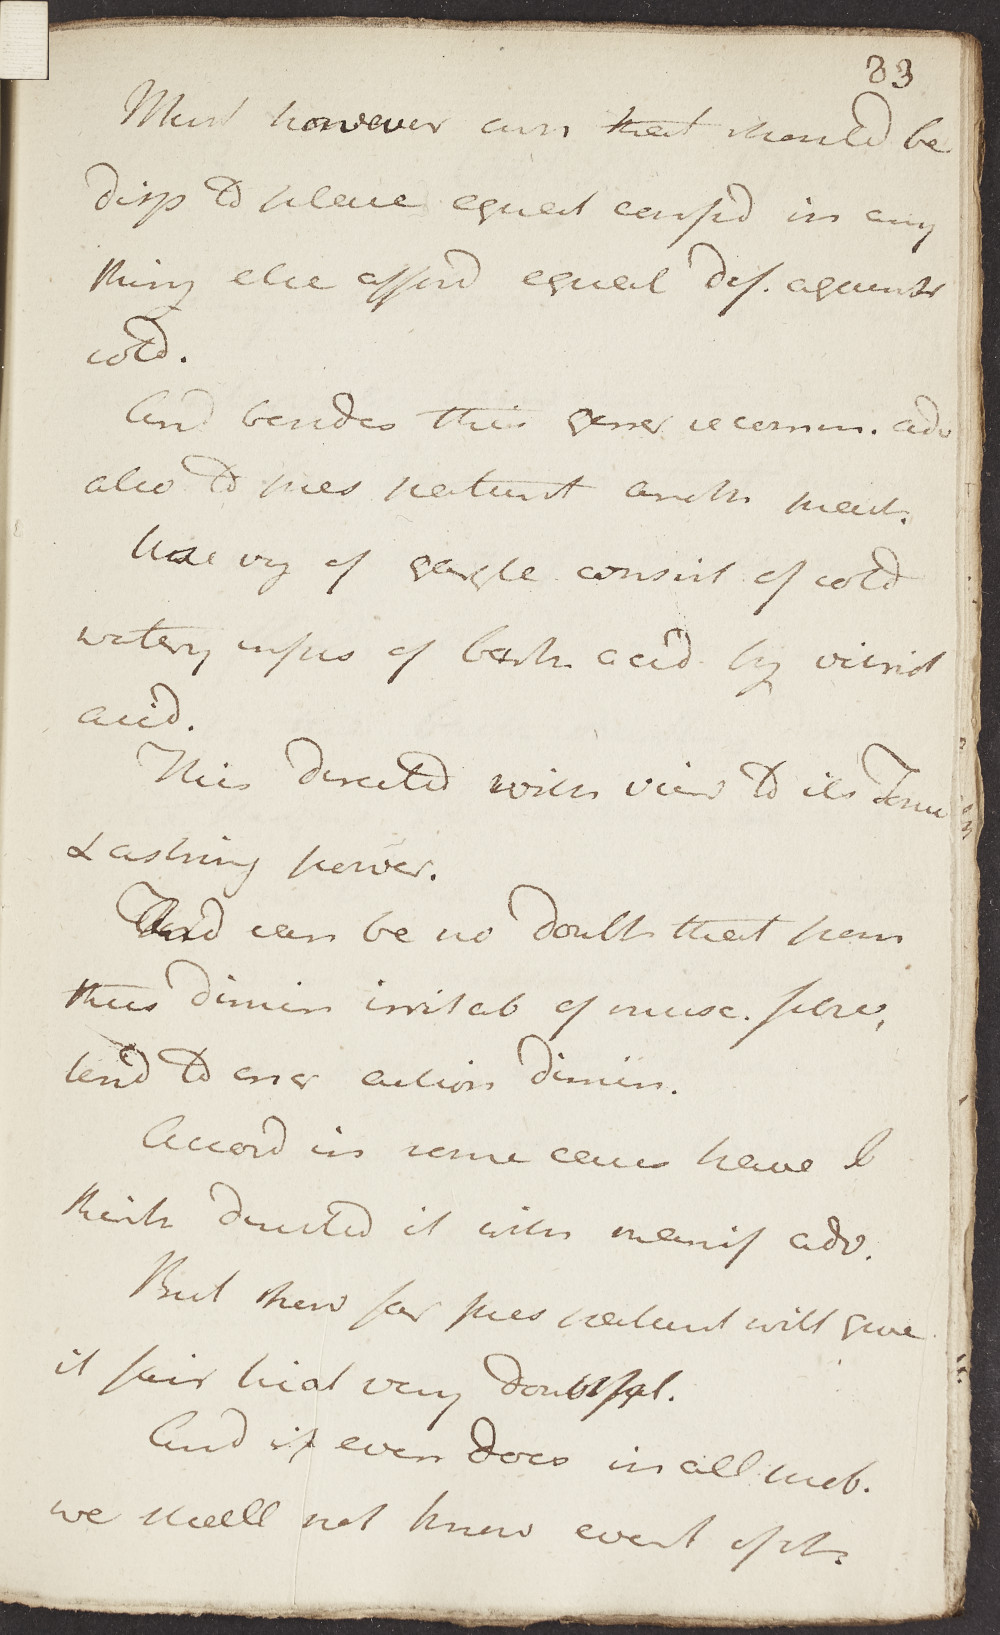 83
Must however own that should be
disp to place equal confid in any
thing else afford equal def. against
cold.
And besides this gener recomm. adv
also to pres patient anoth meas.
Use vy of gargle consist of cold
watery infus of bark acid by vitriol
acid.
This directed with view to its Tonic
& astring power.
There can be no doubt that from
thus dimin irritab of musc. fibres,
tend to ener action dimin.
Accord in some cases have I
think directed it with manif adv.
But how far pres patient will give
it fair trial very doubtful.
And if even does in all prob.
we shall not know event of it.